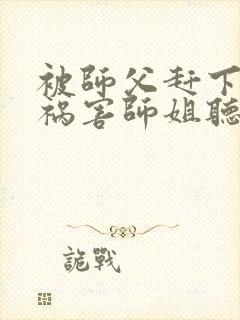 被師父赶下
祸害師姐聽
詭戰